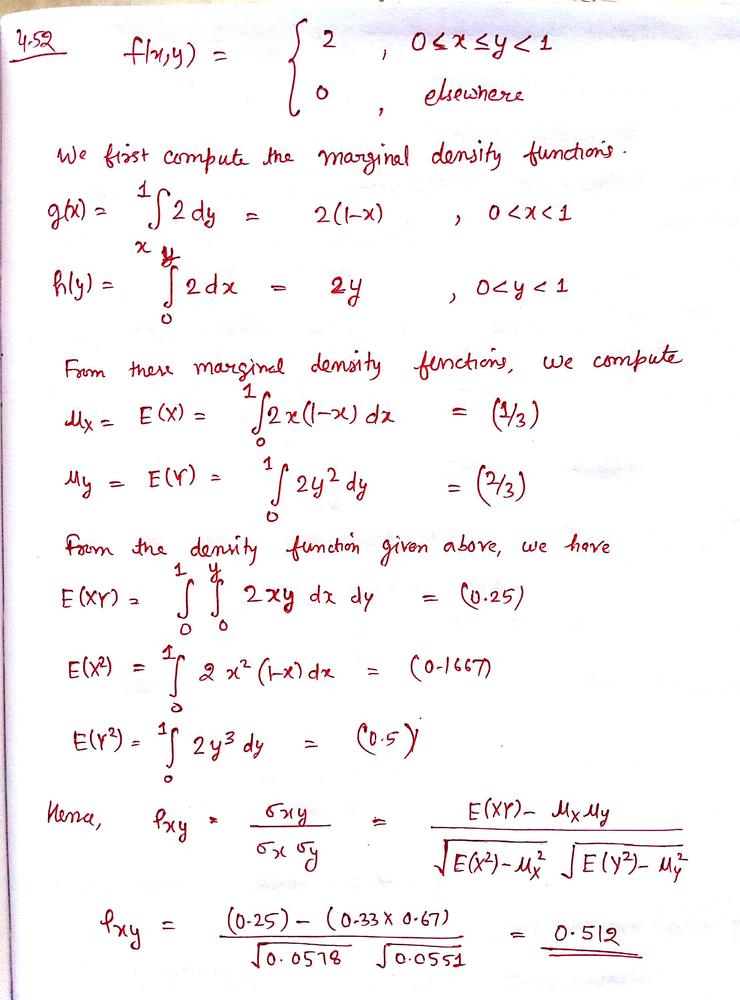 4.52 f(x,y) = { 2 , 0 ≤ x ≤ y < 1
0 , elsewhere
We first compute the marginal density functions.
g(x) = ∫_x^1 2 dy = 2(1-x) , 0 < x < 1
h(y) = ∫_0^y 2 dx = 2y , 0 < y < 1
From these marginal density functions, we compute
μx = E(X) = ∫_0^1 2x(1-x) dx = (1/3)
μy = E(Y) = ∫_0^1 2y² dy = (2/3)
From the density function given above, we have
E(XY) = ∫_0^1 ∫_0^y 2xy dx dy = (0.25)
E(X²) = ∫_0^1 2x²(1-x) dx = (0.1667)
E(Y²) = ∫_0^1 2y³ dy = (0.5)
Hence, ρxy = σxy / σx σy = E(XY) - μx μy / √E(X²)-μx² √E(Y²)-μy²
ρxy = (0.25) - (0.33 x 0.67) / √0.0578 √0.0551 = 0.512